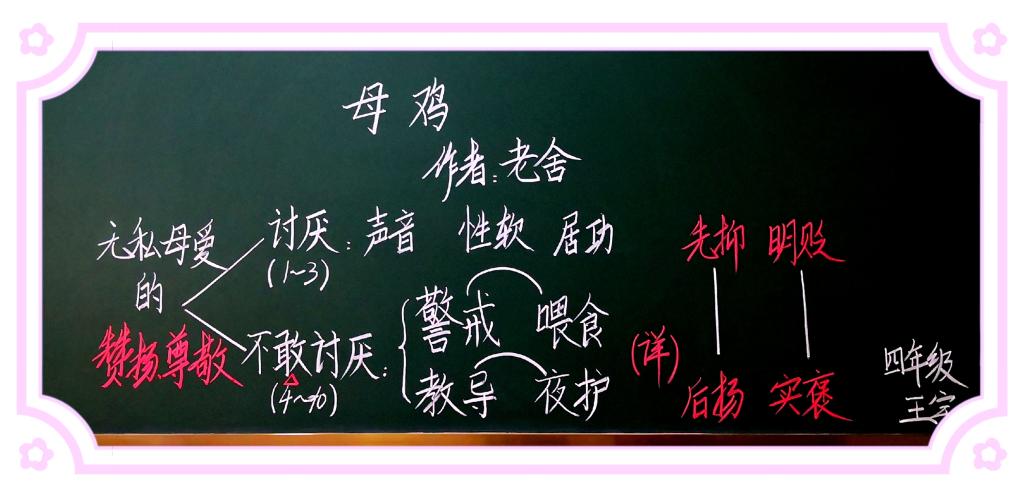 母鸡
作者:老舍
无私母爱的
赞扬.尊敬
讨厌:声音 性软 居功
(1~3)
不敢讨厌:
(4~10)
警戒 喂食
教导 夜护
(详)
先抑 明贬
后扬 实褒
四年级
王